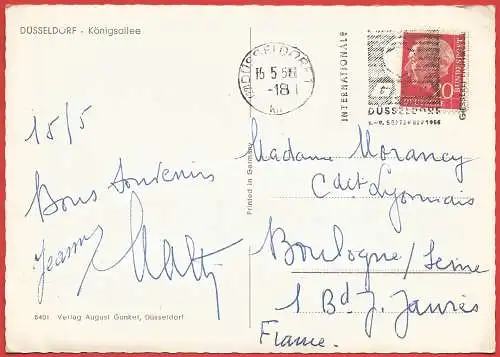 DÜSSELDORF - Königsallee
15/5
Bons Souvenirs
8401 Verlag August Gunkel, Düsseldorf
Printed in Germany
DÜSSELDORF
15.5.56
-18
INTERNATIONALE
DÜSSELDORF
SEPTEMBER 1956
DEUTSCHE BUNDESPOST
20
Madame Morancey
Cdit Lyonnais
Boulogne/Seine
1 Bd J. Jaurès
France.